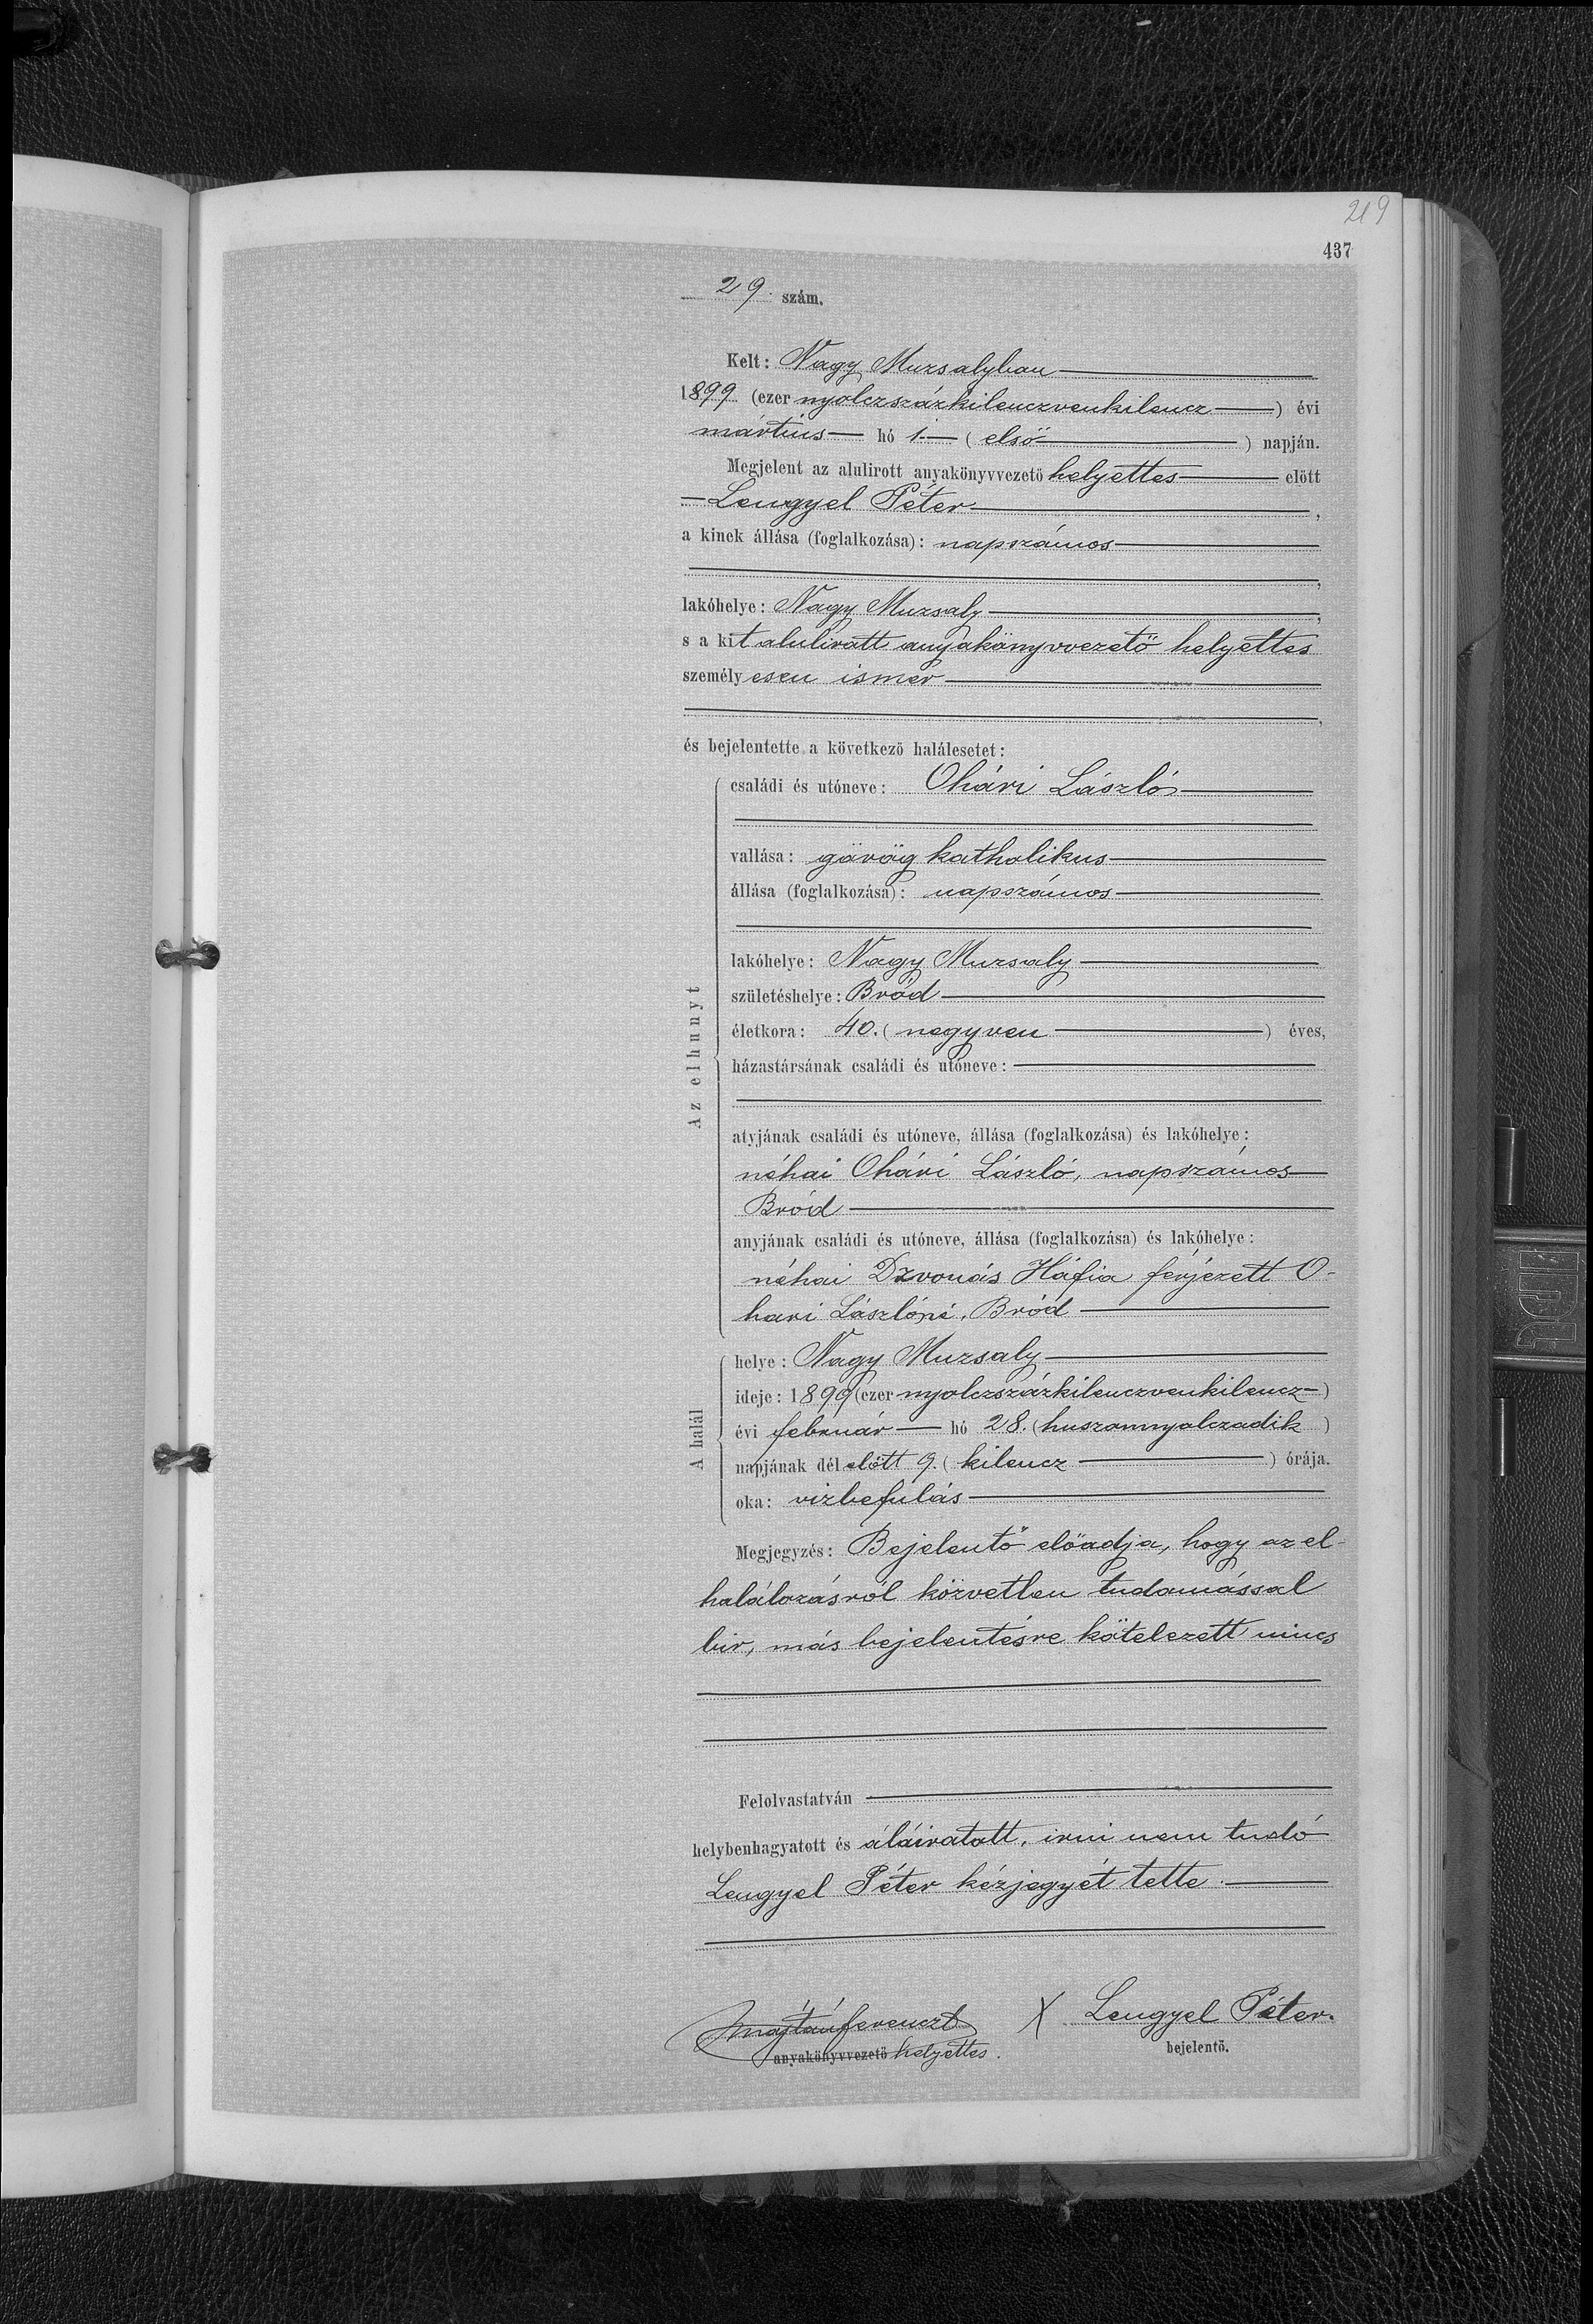 219
437
29. szám.
Kelt: Nagy Muzsalyban
1899 (ezer nyolczszázkilenczvenkilencz) évi
mártius hó 1 (első) napján.
Megjelent az alulirott anyakönyvvezető helyettes előtt
Lengyel Péter,
a kinek állása (foglalkozása): napszámos
,
lakóhelye: Nagy Muzsaly,
s a kit alulirott anyakönyvvezető helyettes
személyesen ismer
,
és bejelentette a következő halálesetet:
Az elhunyt
családi és utóneve: Ohári László
vallása: görög katholikus
állása (foglalkozása): napszámos
lakóhelye: Nagy Muzsaly
születéshelye: Bród
életkora: 40. (negyven) éves,
házastársának családi és utóneve:
atyjának családi és utóneve, állása (foglalkozása) és lakóhelye:
néhai Ohári László, napszámos
Bród
anyjának családi és utóneve, állása (foglalkozása) és lakóhelye:
néhai Dzvonás Háfia férjezett O-
hari Lászlóné, Bród
A halál
helye: Nagy Muzsaly
ideje: 1899 (ezer nyolczszázkilenczvenkilencz)
évi február hó 28. (huszonnyolczadik)
napjának dél előtt 9. (kilencz) órája.
oka: vizbefulás
Megjegyzés: Bejelentő előadja, hogy az el-
halálozásról közvetlen tudomással
bir, más bejelentésre kötelezett nincs
Felolvastatván
helybenhagyatott és aláiratott, irni nem tudó
Lengyel Péter kézjegyét tette.
X Lengyel Péter.
anyakönyvvezető helyettes.
bejelentő.